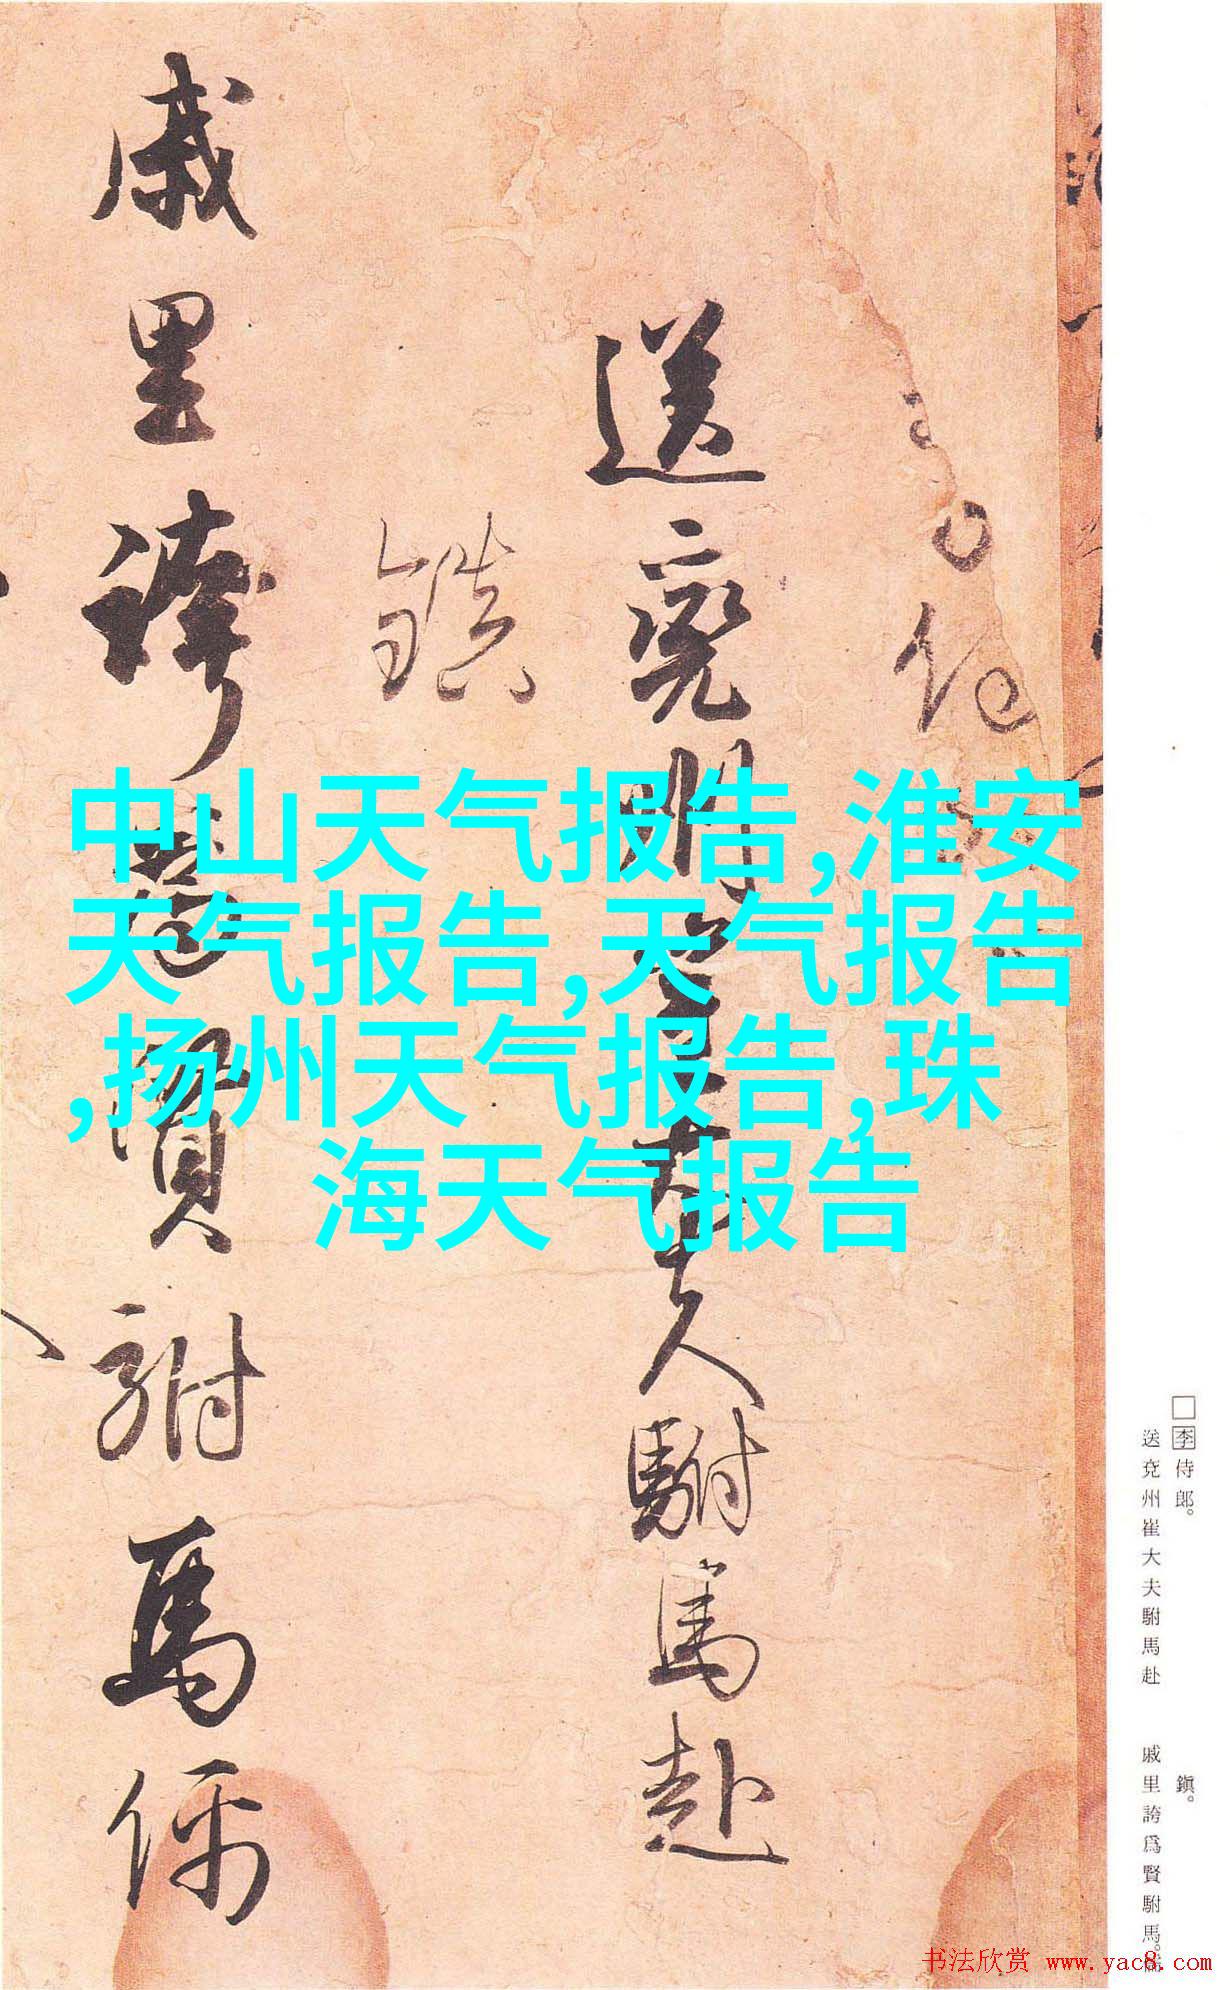 送兖州崔大夫駙馬赴
鎮
戚里誇為賢駙馬儒
中山天气报告,淮安
天气报告,天气报告
,扬州天气报告,珠
海天气报告
□李侍郎。
送兖州崔大夫駙馬赴
鎭。
戚里誇爲賢駙馬。
书法欣赏 www.yac8.com